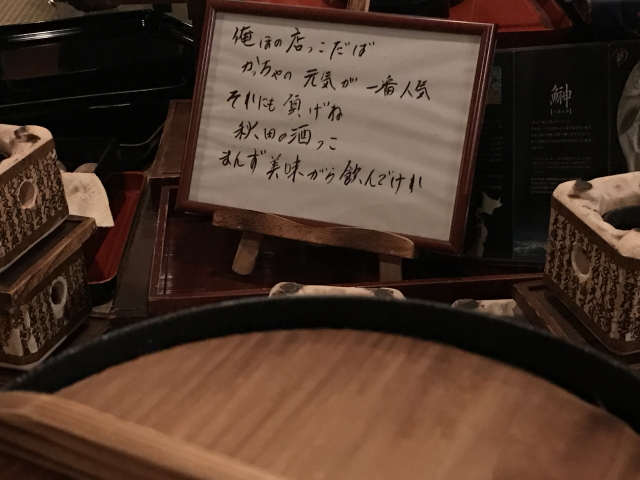 俺ほの店っこだば
かっちゃの 元気が 一番人気
それにも 負げね
秋田の酒っこ
まんず 美味がら 飲んでけれ
鰰